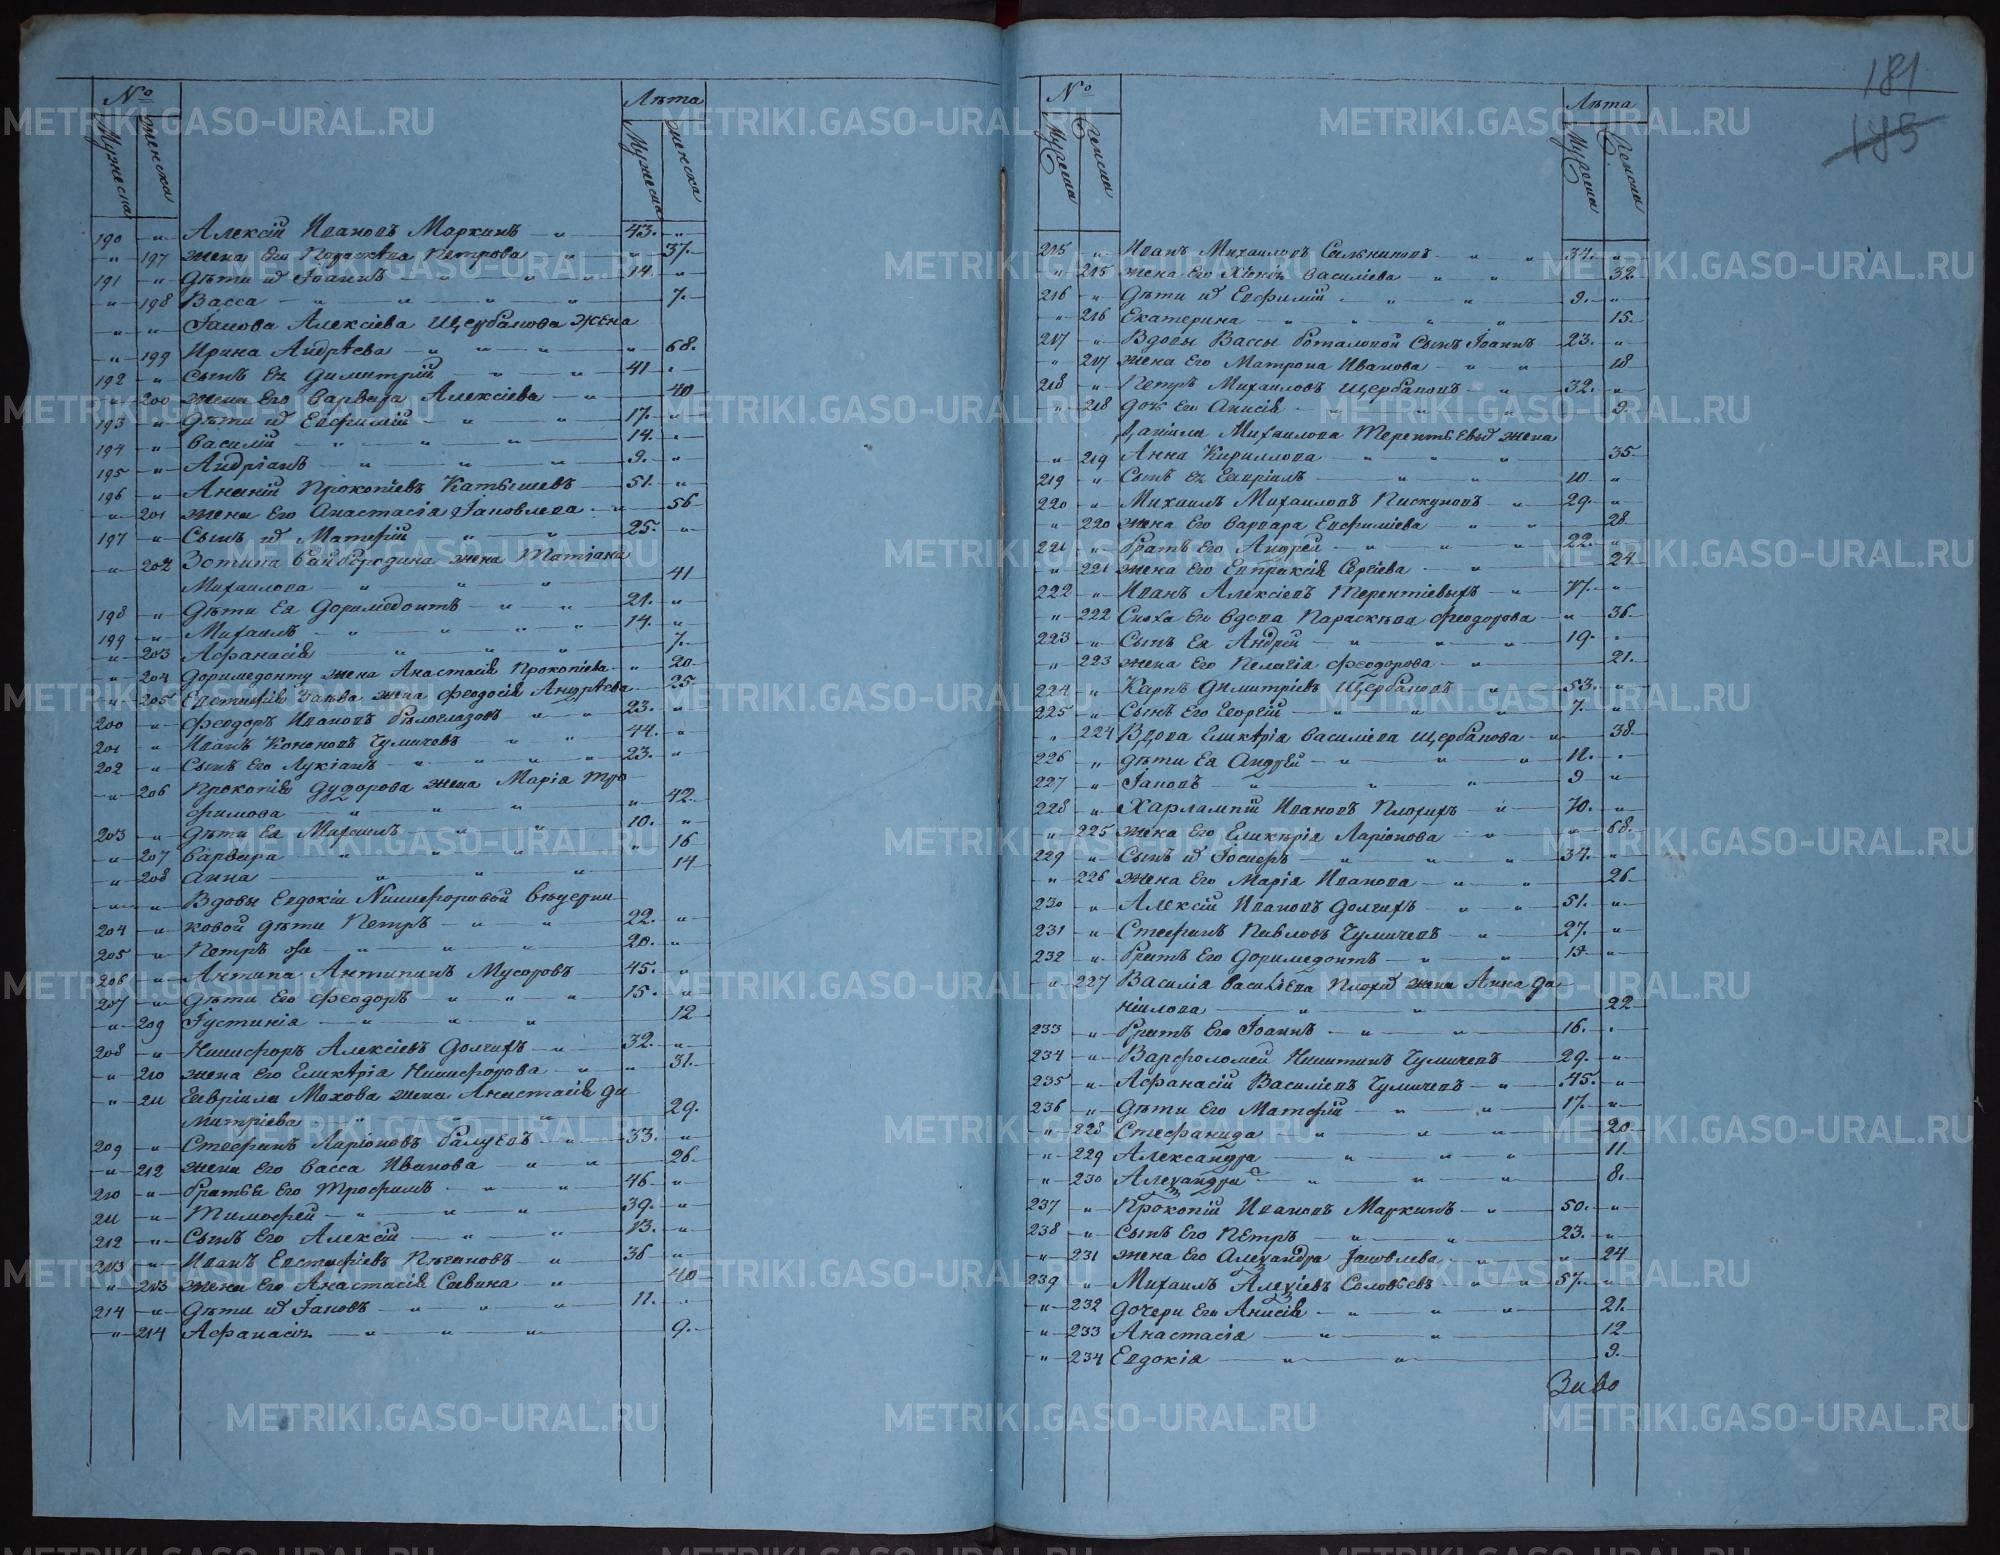 № Лѣта
Мужеска Женска Мужеска Женска
190 " Алексій Ивановъ Маркинъ " 43. "
" 197 жена Его Параскѣва Петрова " " 37.
191 " Дѣти их Іоаннъ " " " 14. "
" 198 Васса " " " " 7.
" " Іакова Алексіева Щербакова жена
" 199 Ирина Андрѣева " " " " 68.
192 " Сынъ Ея Димитрій " " 41 "
" 200 жена Его Варвара Алексіева " 40
193 " Дѣти их Евфимій " " 17. "
194 " Василій " " " 14. "
195 " Андріанъ " " " 9. "
196 " Ананій Прокопіевъ Катышевъ 51. "
" 201 жена Его Анастасія Іаковлева " 56
197 " Сынъ их Матфій " " 25. "
" 202 Зотика Байбородина жена Татіана
Михаилова " " " 41
198 " Дѣти Ея Доримедонтъ " " 21. "
199 " Михаилъ " " " " 14. "
" 203 Афанасія " " " " 7.
" 204 Доримедонту жена Анастасія Прокопіева " 20
" 205 жена Феодосія Андрѣева 25
200 " Феодоръ Ивановъ Бѣлоглазовъ " " 23. "
201 " Иванъ Кононовъ Чумичовъ " " 44. "
202 " Сынъ Его Лукіанъ " " " " 23. "
" 206 Прокопія Дудорова жена Марія Тро
фимова " " " " 42.
203 " Дѣти Ея Михаилъ " " 10. "
" 207 Варвара " " " " 16
" 208 Анна " " " 14
" " Вдовы Евдокіи Никифоровой
204 " ковой дѣти Петръ " " 22. "
205 " Петръ " " " 20. "
206 " Антипа Антипинъ Мусоровъ 45. "
207 " Дѣти Его Феодоръ " " " 15. "
" 209 Іустинія " " " 12
208 " Никифоръ Алексіевъ Долгихъ " 32. "
" 210 жена Его Гликѣрія Никифорова " " 31.
" 211 Гавріила Мохова жена Анастасія Ди
митріева " " " 29.
209 " Стефанъ Ларіоновъ Галуевъ " 33. "
" 212 жена Его Васса Иванова " " 26.
210 " Братья Его Трофимъ " " 46 "
211 " Тимофей " " " 39. "
212 " Сынъ Его Алексій " " 13. "
213 " Иванъ Евстафіевъ Пѣгановъ " 36 "
" 213 жена Его Анастасія Савина " 40
214 " Дѣти их Іаковъ " " " 11. "
" 214 Афанасія " " " 9.
181
185
№ Лѣта
Мужеска Женска Мужеска Женска
215 " Иванъ Михаиловъ Сальниковъ " " 34. "
" 215 жена Его Хіонія Василіева " " 32
216 " Дѣти их Евфимій " " 9. "
" 216 Екатерина " " " " 15.
217 " Вдовы Вассы Поталовой Сынъ Іоаннъ 23. "
" 217 жена Его Матрона Иванова " " 18
218 " Петръ Михаиловъ Щербаковъ " 32. "
" 218 дочь Его Анисія " " " 9.
Даніила Михаилова Терентьевых жена
" 219 Анна Кириллова " " " 35
219 " Сынъ Ея Гавріилъ " " 10 "
220 " Михаилъ Михаиловъ Пискуновъ " 29. "
" 220 жена Его Варвара Евфиміева " " 28
221 " Братъ Его Андрей " " " 22. "
" 221 жена Его Евпраксія Сергіева " 24
222 " Иванъ Алексіевъ Терентіевыхъ " 77. "
" 222 Сноха Его Вдова Параскѣва Феодорова " 36
223 " Сынъ Ея Андрей " " " 19. "
" 223 жена Его Пелагія Феодорова " 21.
224 " Карпъ Димитріевъ Щербаковъ " 53. "
225 " Сынъ Его Георгій " " " 7. "
" 224 Вдова Гликѣрія Василіева Щербакова " 38.
226 " дѣти Ея Андрей " " " 11. "
227 " Іаковъ " " " 9 "
228 " Харлампій Ивановъ Плохихъ " 70. "
" 225 жена Его Гликѣрія Ларіонова " " 68.
229 " Сынъ их Іосифъ " " " 34. "
" 226 жена Его Марія Иванова " " 26
230 " Алексій Ивановъ Долгихъ " " 51. "
231 " Стефанъ Павловъ Чумичевъ " 27. "
232 " Братъ Его Доримедонтъ " " 15 "
" 227 Василія Василіева Плохих жена Анна Да
ніилова " " 22
233 " Братъ Его Іоаннъ " " 16. "
234 " Варфоломей Никитинъ Чумичевъ 29. "
235 " Афанасій Василіевъ Чумичевъ " 45. "
236 " Дѣти Его Матфій " " 17. "
" 228 Стефанида " " " 20
" 229 Александра " " " 11.
" 230 Александра " " " 8.
237 " Прокопій Ивановъ Маркинъ " 50. "
238 " Сынъ Его Петръ " " 23. "
" 231 жена Его Александра Іаковлева " " 24
239 " Михаилъ Алексіевъ Соловьевъ " " 57. "
" 232 Дочери Его Анисія " " " 21.
" 233 Анастасія " " 12
" 234 Евдокія " " 9.